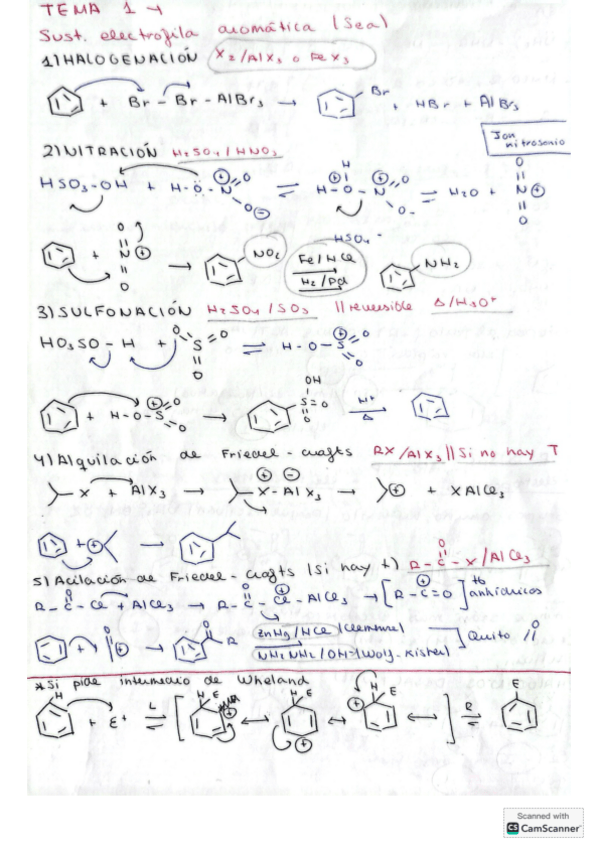 TEMA 1 →
Sust. electrofila aromática (Sea)
1) HALOGENACIÓN X₂/AlX₃ o FeX₃
+ Br - Br - AlBr₃ → Br + HBr + AlBr₃
2) NITRACIÓN H₂SO₄/HNO₃
Ion nitrosonio
HSO₃-OH + H-O-N O O ⇌ H-O-N H O O- ⇌ H₂O + O N O
HSO₄-
+ O N O → NO₂ Fe/HCl H₂/Pd NH₂
3) SULFONACIÓN H₂SO₄/SO₃ || reversible Δ/H₃O⁺
HO₃SO-H + O S O O ⇌ H-O-S O O
+ H-O-S O O → OH S=O O H⁺ Δ
4) Alquilación de Friedel-crafts RX/AlX₃ || Si no hay T
X + AlX₃ → X-AlX₃ → + XAlCl₃
+ →
5) Acilación de Friedel-crafts (Si hay t) R-C-X/AlCl₃ O
R-C-Cl + AlCl₃ → R-C-Cl-AlCl₃ → [R-C=O] tb anhídricos
+ O → O R ZnHg/HCl (Clemmen) Quito O
NH₂NH₂/OH-(Wolf-Kisher)
*Si pide intermedio de Wheland
H + E⁺ L ⇌ [ H E ↔ H E ↔ H E ↔ ] R ⇌ E
Scanned with
CS CamScanner